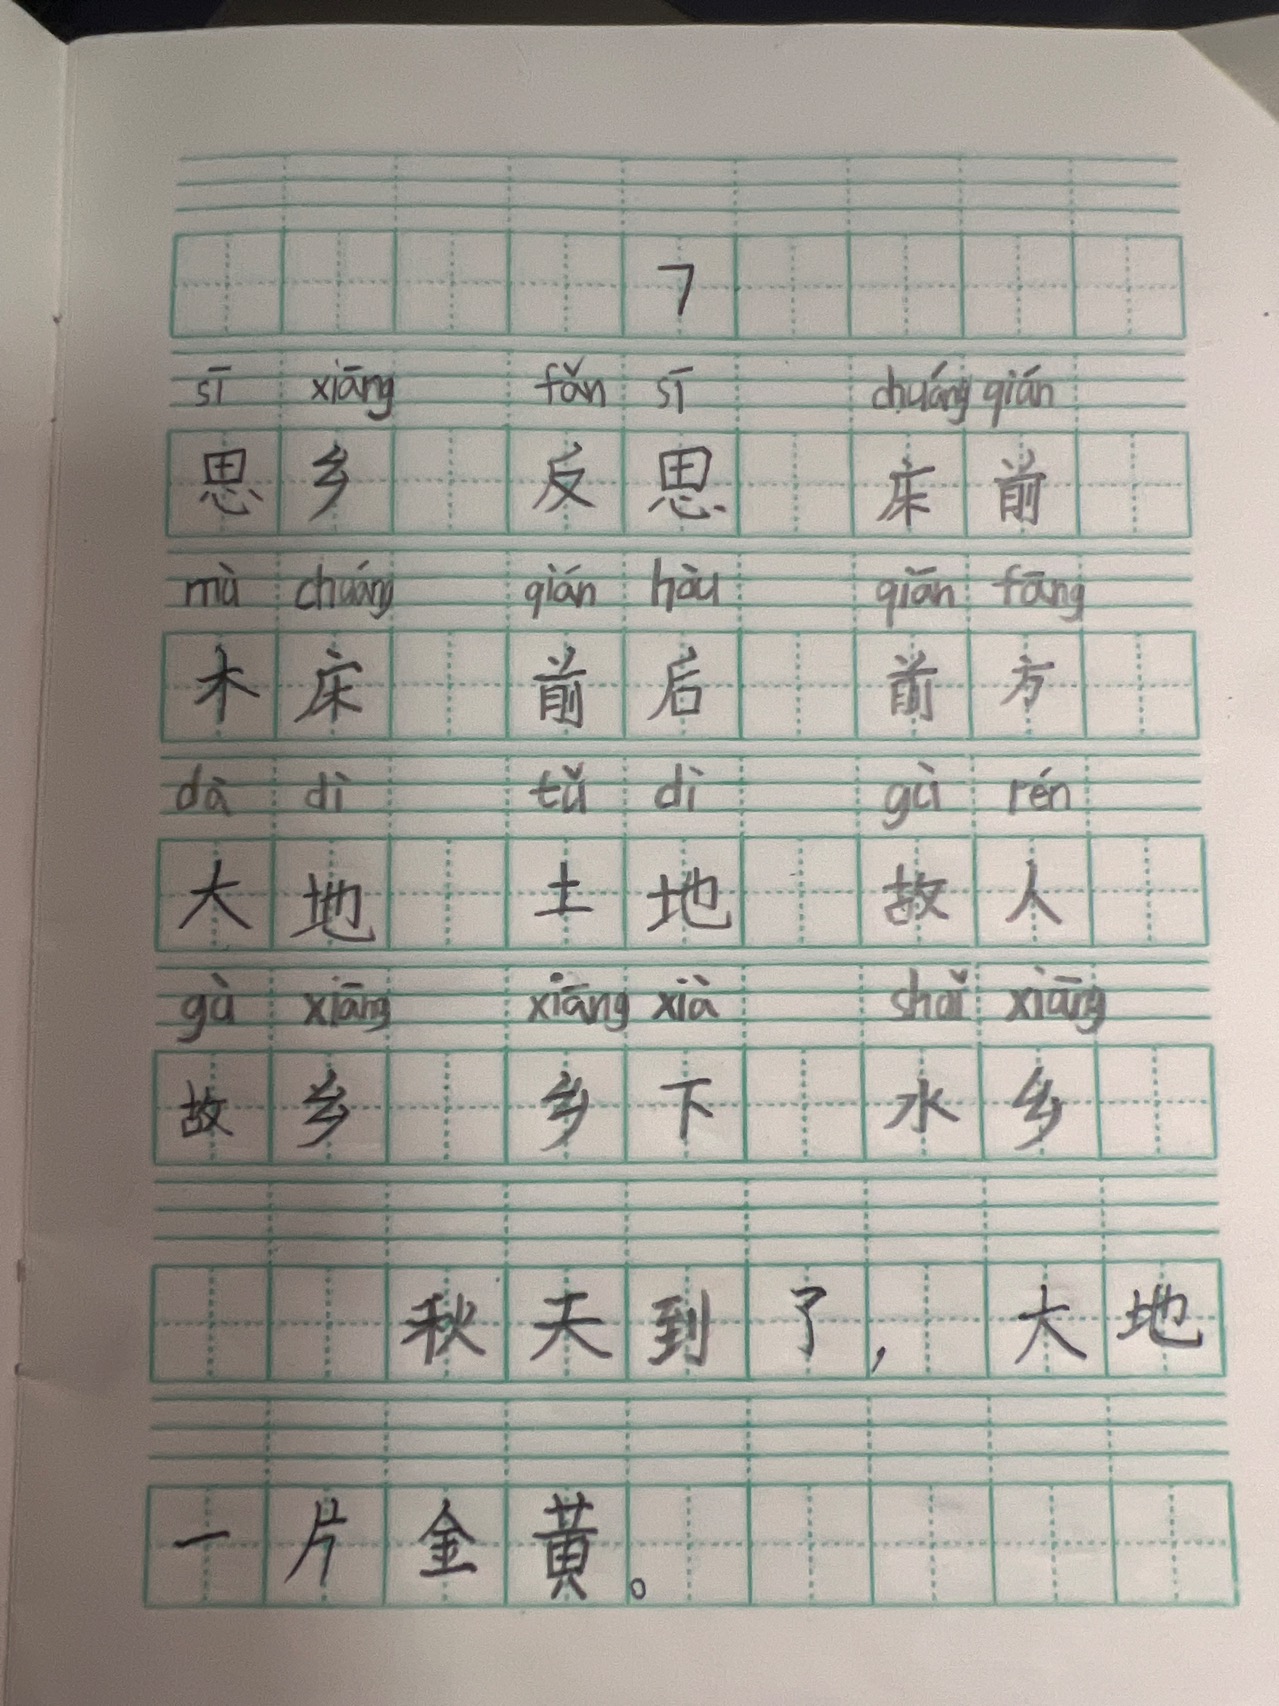 7
sī xiāng fǎn sī chuáng qián
思乡 反思 床前
mù chuáng qián hòu qiān fāng
木床 前后 前方
dà dì tǔ dì gù rén
大地 土地 故人
gù xiāng xiāng xià shuǐ xiāng
故乡 乡下 水乡
秋天到了，大地
一片金黄。